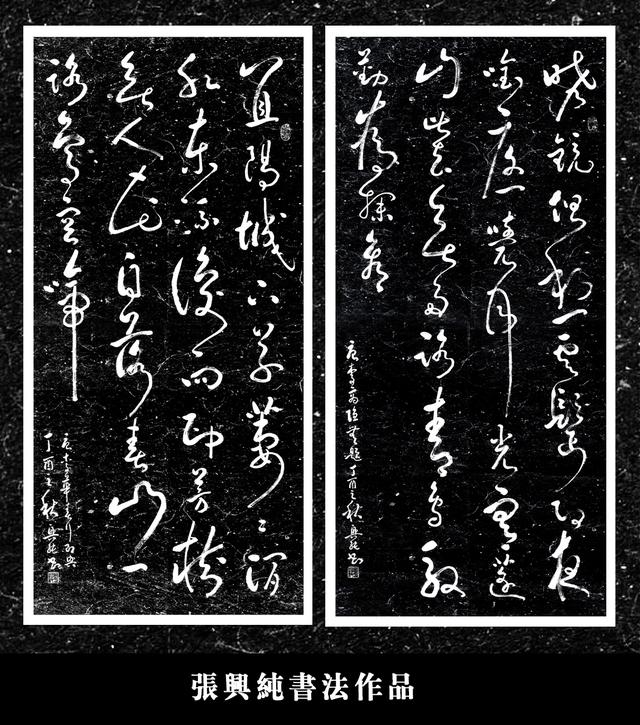 曉鏡但愁雲鬢改夜
吟應覺月光寒蓬
山此去無多路青鳥殷
勤為探看
唐李商隱無題 丁酉之秋興純書
宜陽城下草萋々澗
水東流復向西芳樹
無人花自落春山一
路鳥空啼
唐李華春行即興
丁酉之秋興純書
張興純書法作品